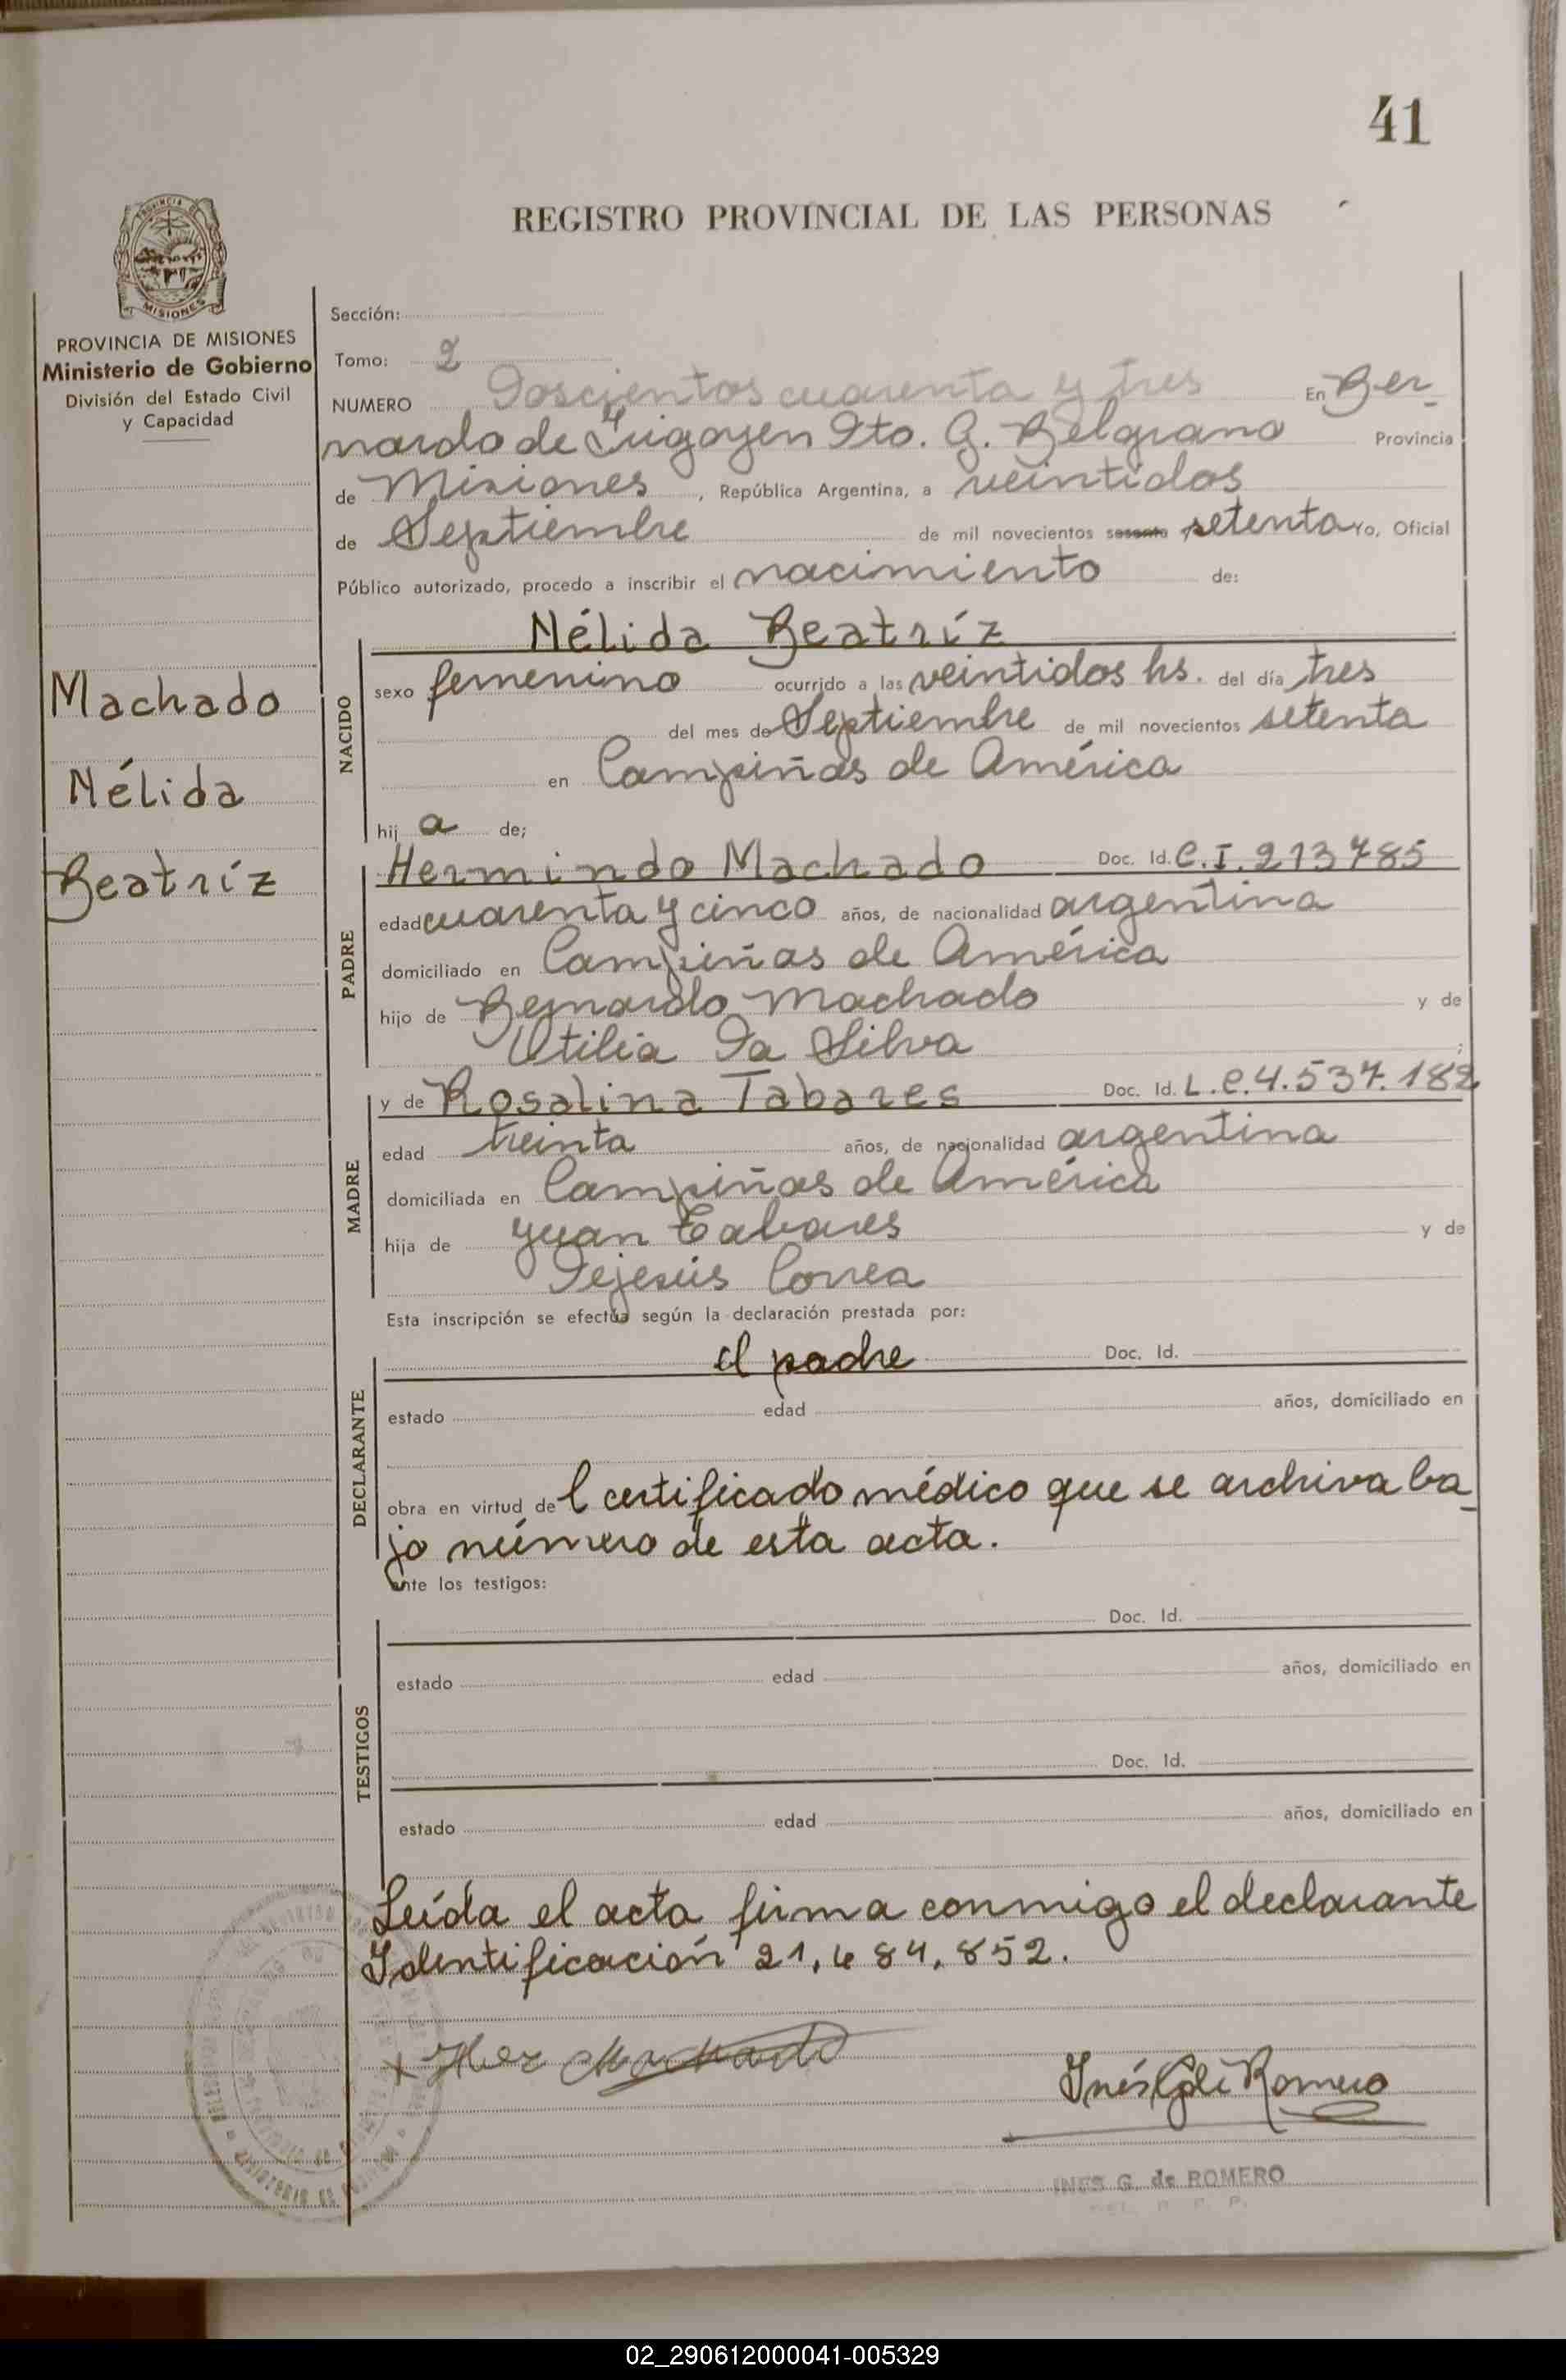 41
REGISTRO PROVINCIAL DE LAS PERSONAS
PROVINCIA DE
MISIONES
PROVINCIA DE MISIONES
Ministerio de Gobierno
División del Estado Civil
y Capacidad
Machado
Nélida
Beatríz
Sección:
Tomo: 2
NUMERO Doscientos cuarenta y tres En Ber_
nardo de Irigoyen Dto. G. Belgrano Provincia
de Misiones, República Argentina, a veintidos
de Septiembre de mil novecientos sesenta setenta Yo, Oficial
Público autorizado, procedo a inscribir el nacimiento de:
NACIDO
Nélida Beatríz
sexo femenino ocurrido a las veintidos hs. del día tres
del mes de Septiembre de mil novecientos setenta
en Campiñas de América
hij a de;
PADRE
Hermindo Machado Doc. Id. C.I. 213785
edad cuarenta y cinco años, de nacionalidad argentina
domiciliado en Campiñas de América
hijo de Bernardo Machado y de
Otilia Da Silva
MADRE
y de Rosalina Tabares Doc. Id. L.C. 4.537.182
edad treinta años, de nacionalidad argentina
domiciliada en Campiñas de América
hija de Juan Tabares y de
Dejesús Correa
Esta inscripción se efectúa según la declaración prestada por:
DECLARANTE
el padre Doc. Id.
estado edad años, domiciliado en
obra en virtud del certificado médico que se archiva ba_
jo número de esta acta.
ante los testigos:
TESTIGOS
Doc. Id.
estado edad años, domiciliado en
Doc. Id.
estado edad años, domiciliado en
Leída el acta firma conmigo el declarante
Identificación 21.484.852.
x Her Machado
Inés Romero
INES G. de ROMERO
02_290612000041-005329